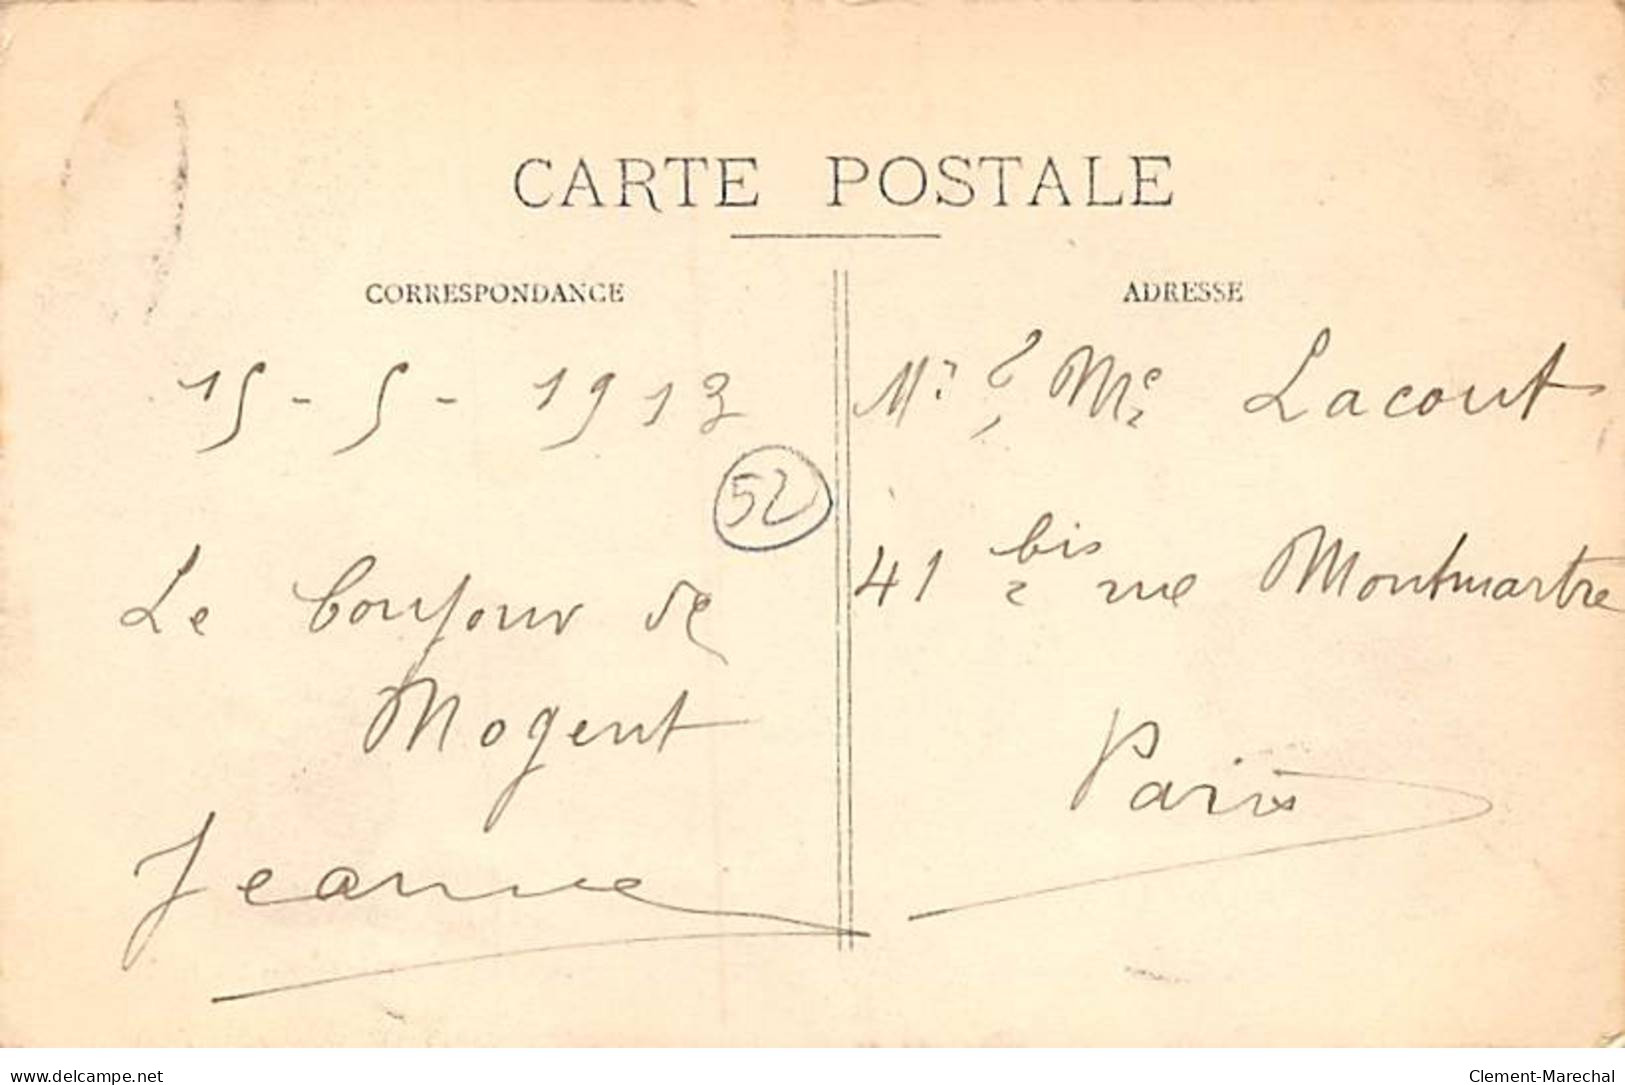 CARTE POSTALE
CORRESPONDANCE
ADRESSE
15 - 5 - 1913
52
Le bonjour de
Nogent
Jeanne
Mr & Me Lacout
41 bis rue Montmartre
Paris
www.delcampe.net
Clement-Marechal